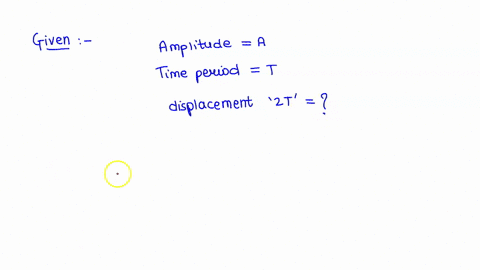 Given :-
Amplitude = A
Time period = T
displacement '2T' = ?